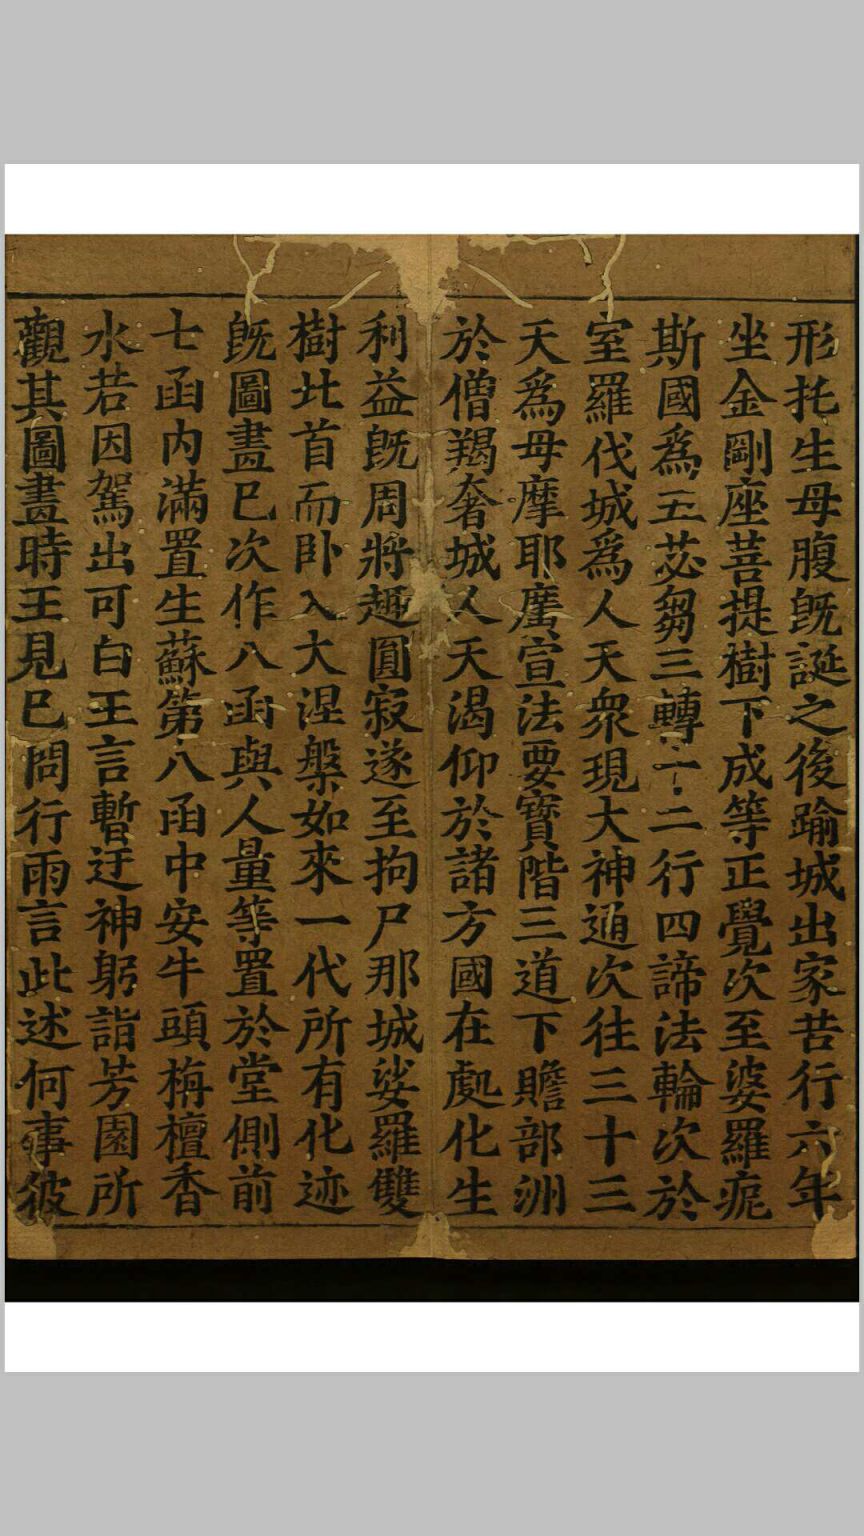 形托生母腹旣誕之後踰城出家苦行六年
坐金剛座菩提樹下成等正覺次至婆羅痆
斯國爲五苾芻三轉十二行四諦法輪次於
室羅伐城爲人天衆現大神通次往三十三
天爲母摩耶廣宣法要寶階三道下贍部洲
於僧羯奢城人天渴仰於諸方國在處化生
利益旣周將趣圓寂遂至拘尸那城娑羅雙
樹北首而卧入大涅槃如來一代所有化迹
旣圖畫已次作八函與人量等置於堂側前
七函内滿置生蘇第八函中安牛頭栴檀香
水若因駕出可白王言暫迂神躬詣芳園所
觀其圖畫時王見已問行雨言此述何事彼